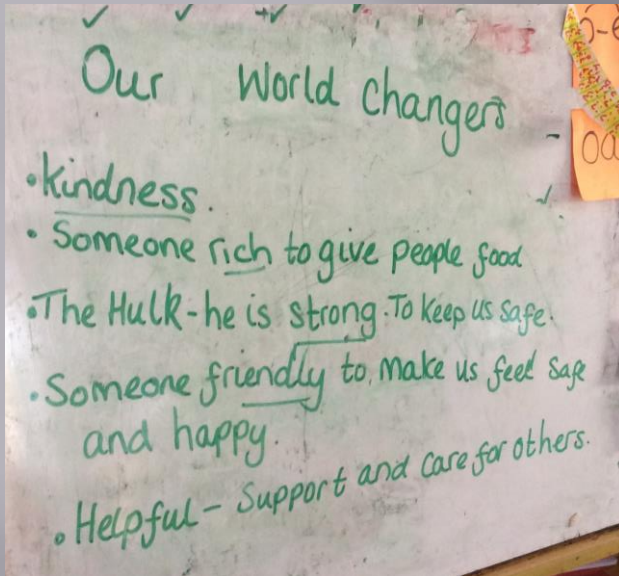 Our World Changers
• Kindness.
• Someone rich to give people food
• The Hulk - he is strong. To keep us safe.
• Someone friendly to make us feel safe
and happy.
• Helpful - Support and care for others.